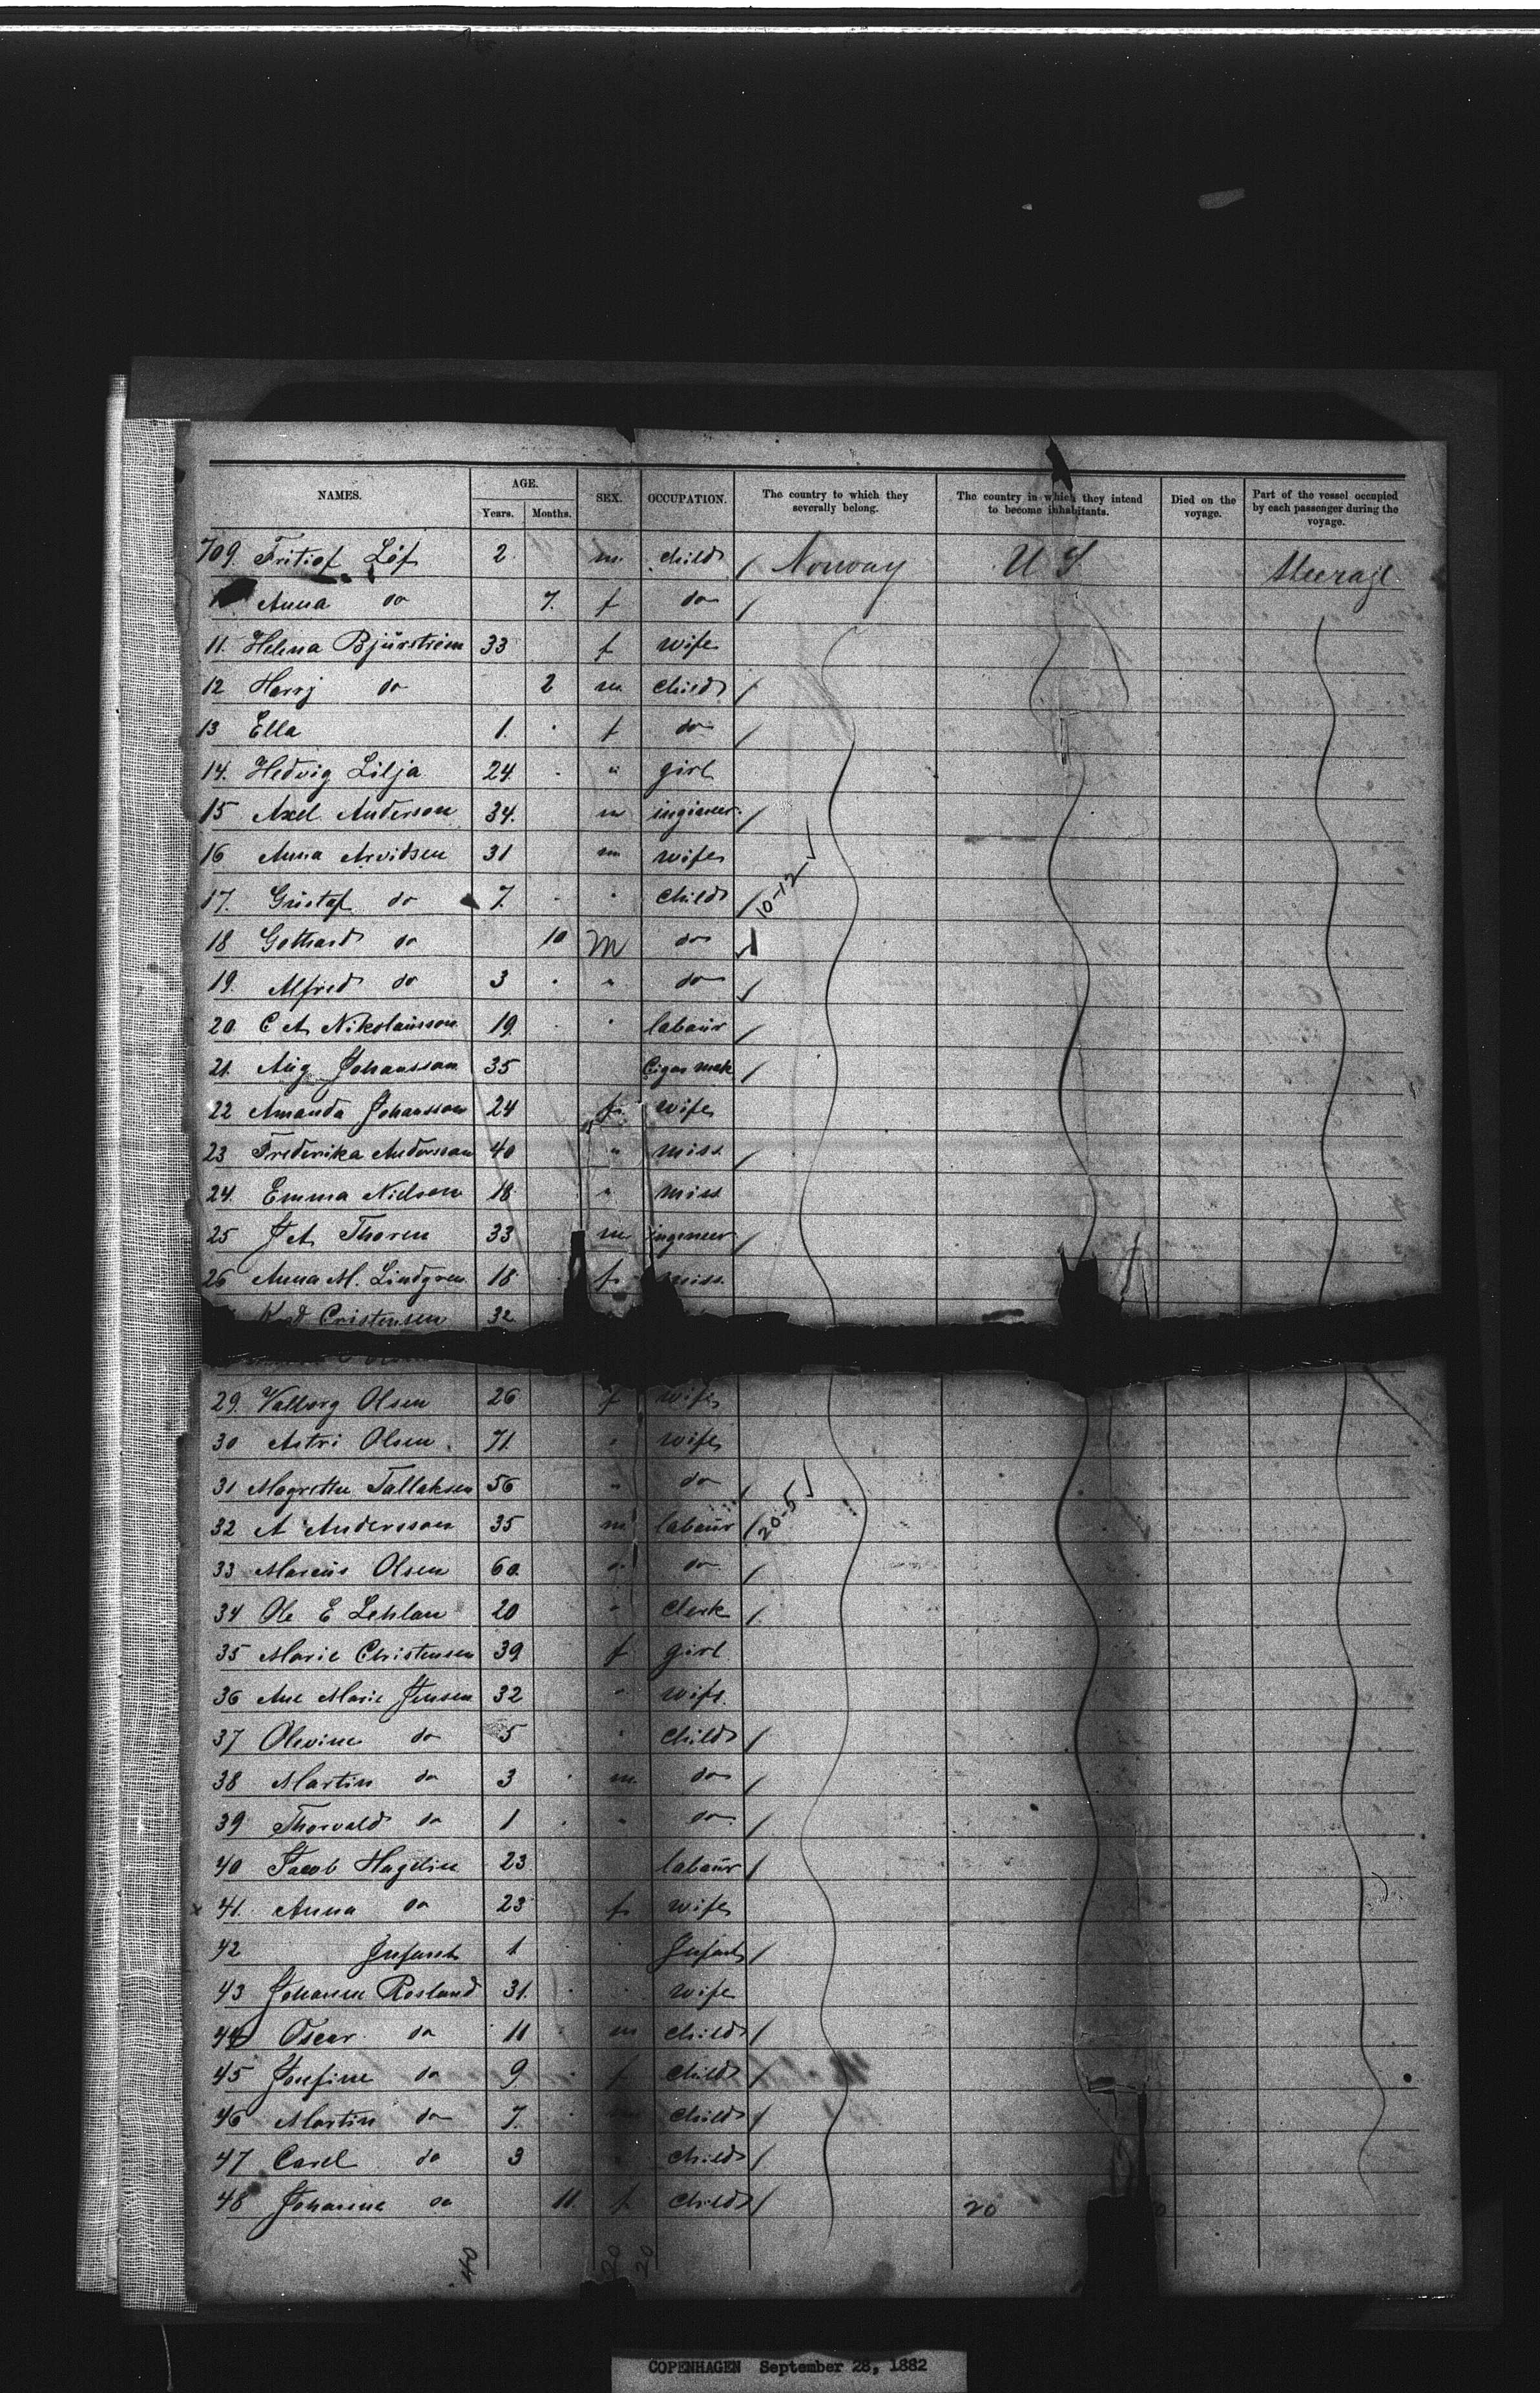 NAMES. AGE. SEX. OCCUPATION. The country to which they severally belong. The country in which they intend to become inhabitants. Died on the voyage. Part of the vessel occupied by each passenger during the voyage.
Years. Months.
709. Fritiof Löf 2 m child / Norway U S Steerage
Anna do 7. f do /
11. Helena Bjürström 33 f wife
12 Harry do 2 m child /
13 Ella 1. f do /
14. Hedvig Lilja 24 " girl
15 Axel Anderson 34. m ingineer. /
16 Anna Arvidsen 31 m wife
17. Gustaf do 7. " child / 10-12 ✓
18 Gothard do 10 m do
19. Alfred do 3 " do /
20. C A Nikolausson 19. " labour /
21. Aug Johansson 35 Cigar mak /
22 Amanda Johansson 24 f wife
23 Frederika Andersson 40 " miss. /
24. Emma Nielson 18 " miss
25 J A Thoren 33 m ingeneer /
26 Anna M. Lindgren 18 f miss.
Cristensen 32
29. Valborg Olsen 26 f wife
30 Astri Olsen 71. " wife
31 Magrethe Tallaksen 56 " do /
32 A Andersson 35 m labour / 20-5 ✓
33 Marcus Olsen 60. " do /
34 Ole E Lehlan 20 " Clerk /
35 Marie Christensen 39 f girl
36 Ane Marie Jensen 32 " wife.
37 Olevine do 5 " child /
38 Martin do 3 m do /
39 Thorvald do 1 " do /
40 Jacob Hagelin 23 labour /
x 41. Anna do 23 f wife
42 Infant 1 Infant /
43 Johanne Rosland 31. wife
44 Oscar do 11 m child /
45 Josefine do 9 f child /
46 Martin do 7. m child /
47 Carel do 3 child /
48 Johanne do 11. f child /
20
40 20 20
COPENHAGEN September 28, 1882